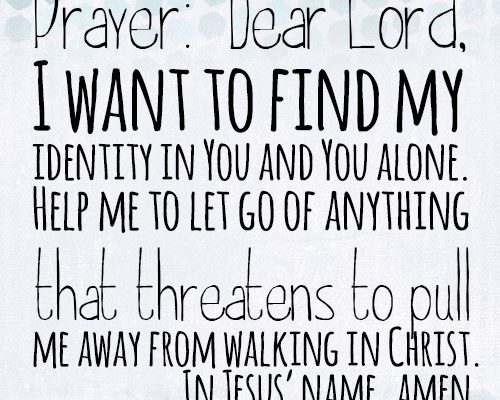 Prayer: Dear Lord,
I WANT TO FIND MY
IDENTITY IN YOU AND YOU ALONE.
HELP ME TO LET GO OF ANYTHING
that threatens to pull
ME AWAY FROM WALKING IN CHRIST.
IN JESUS' NAME, AMEN